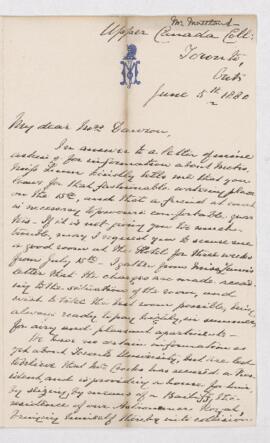 Mr Maitland
Upper Canada Coll:
Toronto,
Ont:
June 5th 1880
My dear Mrs Dawson,
In answer to a letter of mine
asking for information about Metis,
Miss kindly tells me that you
leave for that fashionable watering place
on the 15th, and that a friend at court
is necessary to procure comfortable quar
ters. If it is not giving you too much
trouble, may I request you to secure me
a good room at the Hotel for three weeks
from July 15th. I gather from Miss
letter that the charges are made accord
ing to the situation of the room, and
wish to take the best room possible, being
always ready to pay in summer
for airy and pleasant apartments.
We have no certain information as
yet about Toronto University, but are led
to believe that Mr has secured a Pres
ident, and is providing a house for him
by seizing by means of a Bailiff the
residence of our Astronomer Royal,
bringing himself thereby into collision